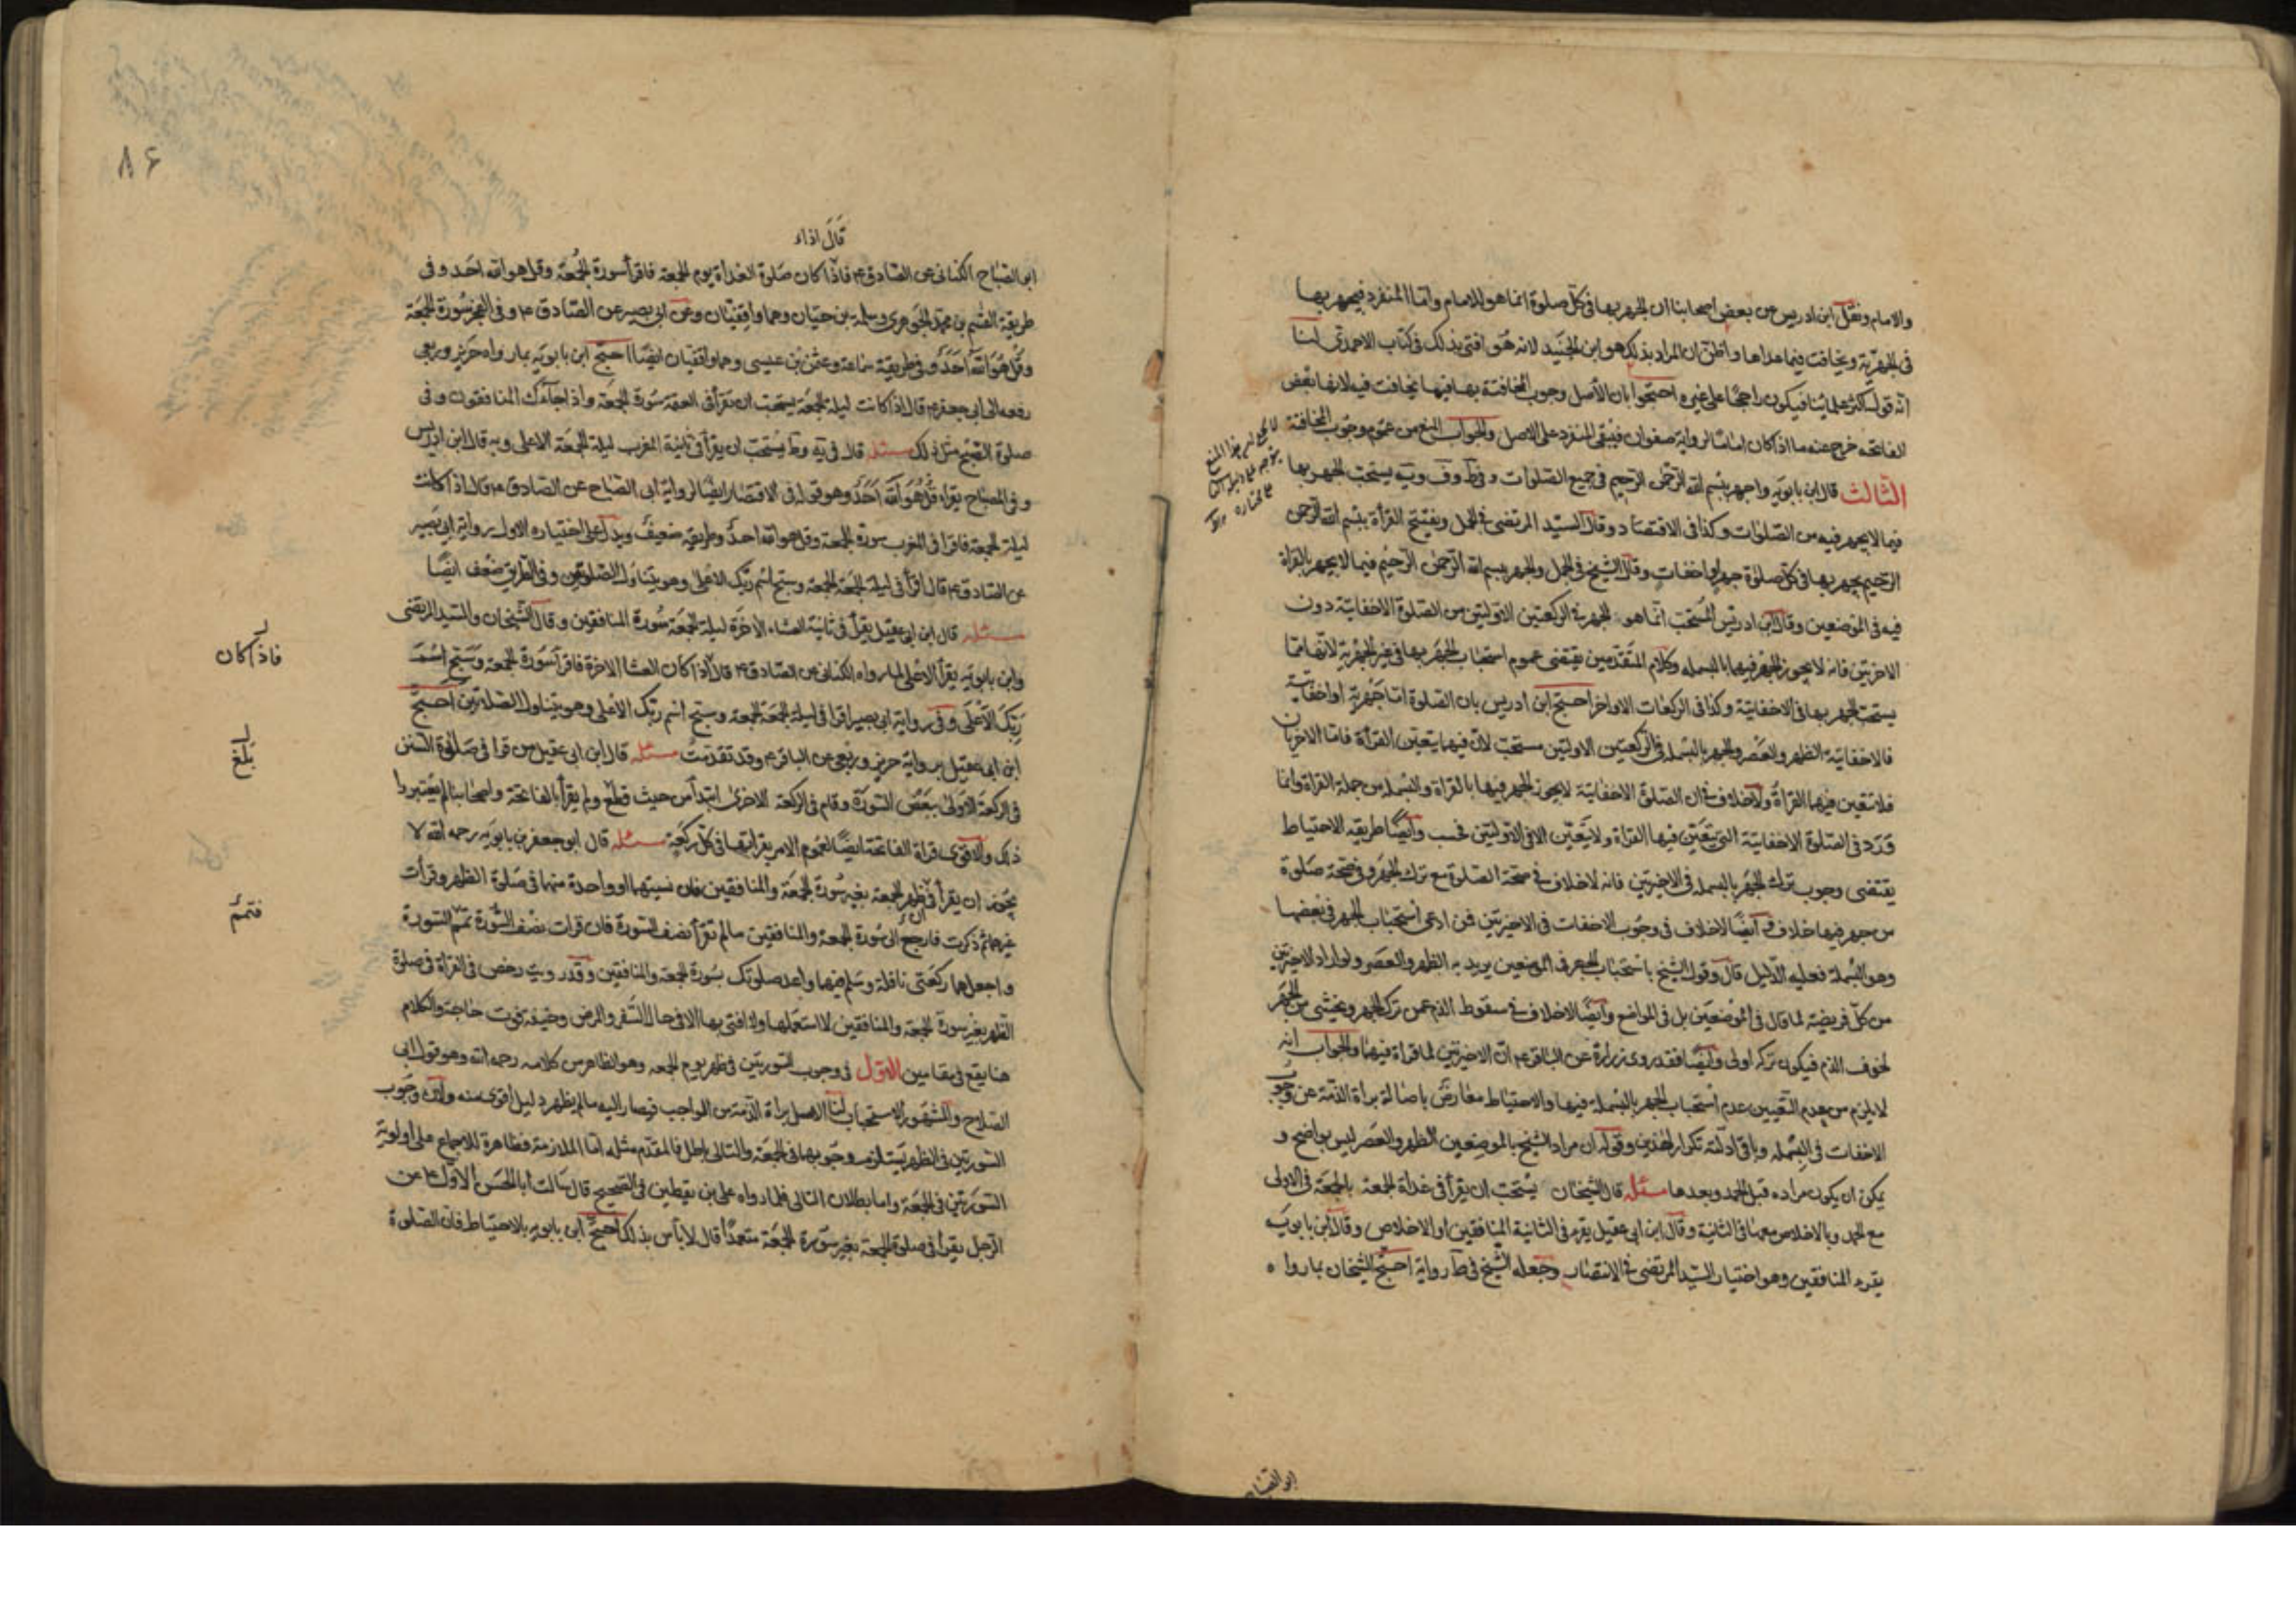 والامام ونقل ابن ادريس عن بعض اصحابنا ان الجهر بها فى كل صلوة انما هو للامام واما المنفرد فيجهر بها
فى الجهرية ويخافت فيما عداها واظن ان المراد بذلك هو ابن الجنيد لانه هو افتى بذلك فى كتاب الاحمدى لنا
انه قول اكثر علمائنا فيكون راجحا على غيره احتجوا بان الاصل وجوب المخافتة بها فيما يخافت فيه لانها بعض
الفاتحة خرج عنه ما اذا كان اماما لرواية صفوان فيبقى المنفرد على الاصل والجواب المنع من عموم وجوب المخافتة
الثالث قال ابن بابويه واجهر ببسم الله الرحمن الرحيم فى جميع الصلوات و فى ط وف ويه يستحب الجهر بها
فيما لايجهر فيه من الصلوات وكذا فى الاقتصاد وقال السيد المرتضى فى الجمل ويفتتح القرأة ببسم الله الرحمن
الرحيم يجهر بها فى كل صلوة جهر او اخفات وقال الشيخ فى الجمل والجهر ببسم الله الرحمن الرحيم فيما لايجهر بالقراة
فيه فى الموضعين وقال ابن ادريس المستحب انما هو الجهر فى الركعتين الاوليتين من الصلوة الاخفاتية دون
الاخريتين فانه لايجوز الجهر فيهما بالبسمله وكلام المتقدمين يقتضى عموم استحباب الجهر بها فى غير الجهرية لانهم انما
يستحب الجهر بها فى الاخفاتية وكذا فى الركعات الاواخر احتج ابن ادريس بان الصلوة اما جهرية او اخفاتية
فالاخفاتية الظهر والعصر والجهر بالبسمله فى الركعتين الاوليتين مستحب لان فيهما يتعين القرأة فاما الاخريان
فلا تتعين فيهما القراة ولاخلاف فى ان الصلوة الاخفاتية لايجوز الجهر فيها بالقراة والبسمله من جملة القراة وانما
ورد فى الصلوة الاخفاتية التى يتعين فيها القراة ولايتعين الا فى الاوليتين فحسب وايضا طريقة الاحتياط
يقتضى وجوب ترك الجهر بالبسمله فى الاخيرتين فانه لاخلاف فى صحة الصلوة مع ترك الجهر وفى صحة صلوة
من جهر فيها خلاف وايضا لاخلاف فى وجوب الاخفات فى الاخيرتين فمن ادعى استحباب الجهر فى بعضها
وهو البسملة فعليه الدليل قال وقول الشيخ باستحباب الجهر فى الموضعين يريد به الظهر والعصر ولو اراد الاخيرتين
من كل فريضة لما قال فى الموضعين بل فى المواضع وايضا لاخلاف فى سقوط الذم عمن ترك الجهر ويخشى من الجهر
لخوف الذم فيكون تركه اولى وايضا فقد روى زرارة عن الباقر ع ان الاخيرتين لا قراة فيهما والجواب انه
لايلزم من عدم التعيين عدم استحباب الجهر بالبسملة فيها والاحتياط معارض باصالة براة الذمة عن وجوب
الاخفات فى البسمله وباقى ادلته تكرار لهذين وقوله ان مراد الشيخ بالموضعين الظهر والعصر ليس بواضح و
يمكن ان يكون مراده قبل الحمد وبعدها مسئله قال الشيخان يستحب ان يقرأ فى غداة الجمعة بالجمعة فى الاولى
مع الحمد وبالاخلاص معها فى الثانية وقال ابن ابى عقيل يقرء فى الثانية المنافقين او الاخلاص وقال ابن بابويه
يقرء المنافقين وهو اختيار السيد المرتضى فى الانتصار وجعله الشيخ فى ط رواية احتج الشيخان بما رواه
ابو الصباح
٨٤
قال اذاء
ابو الصباح الكنانى عن الصادق ع فاذا كان صلوة الغداة يوم الجمعة فاقرأ سورة الجمعة وقل هو الله احد وفى
طريقة القسم بن محمد الجوهرى وسلمة بن حيان وهما واقفيان وعن ابى بصير عن الصادق ع وفى الفجر سورة الجمعة
وقل هو الله احد وفى طريقة سماعة وعثمن بن عيسى وهما واقفيان ايضا احتج ابن بابويه بما رواه حريز وربعى
رفعه الى ابى جعفر ع قال اذا كانت ليلة الجمعة يستحب ان يقرأ فى العتمة سورة الجمعة واذا جاءك المنافقون وفى
صلوة الصبح مثل ذلك مسئله قال فى يه وط يستحب ان يقرأ فى ثانية المغرب ليلة الجمعة الاعلى وبه قال ابن ادريس
وفى المصباح يقراء قل هو الله احد وهو قوله فى الاقتصار ايضا لرواية ابى الصباح عن الصادق ع قال اذا كانت
ليلة الجمعة فاقرا فى المغرب سورة الجمعة وقل هو الله احد وطريقه ضعيف ويدل على اختياره الاول رواية ابى بصير
عن الصادق ع قال اقرأ فى ليلة الجمعة الجمعة وسبح اسم ربك الاعلى وهو يتناول الصلوتين وفى الطريق ضعف ايضا
مسئله قال ابن ابى عقيل يقرأ فى ثانية العشاء الاخرة ليلة الجمعة سورة المنافقين وقال الشيخان والسيد المرتضى
وابن بابويه يقرأ الاعلى لما رواه الكنانى عن الصادق ع قال اذا كان العشا الاخرة فاقرأ سورة الجمعة وسبح اسم
ربك الاعلى وفى رواية ابى بصير اقرا فى ليلة الجمعة الجمعة وسبح اسم ربك الاعلى وهو يتناول الصلاتين احتج
ابن ابى عقيل برواية حريز وربعى عن الباقر ع وقد تقدمت مسئله قال ابن ابى عقيل من قرا فى صلوة السنن
فى الركعة الاولى ببعض السورة وقام فى الركعة الاخرى ابتدأ من حيث قطع ولم يقرأ بالفاتحة واصحابنا لم يعتبروا
ذلك والاقوى قراة الفاتحة ايضا لعموم الامر بقرائتها فى كل ركعة مسئله قال ابو جعفر بن بابويه رحمه الله لا
يجوز ان يقرأ فى ظهر الجمعة بغير سورة الجمعة والمنافقين فان نسيتهما او واحدة منهما فى صلوة الظهر وقرأت
غيرهما ثم ذكرت فارجع الى سورة الجمعة والمنافقين مالم تقرأ نصف السورة فان قرات نصف السورة تمم السورة
واجعلهما ركعتى نافلة وسلم فيهما واعد صلوتك بسورة الجمعة والمنافقين وقد رويت رخص فى القراة فى صلوة
الظهر بغير سورة الجمعة والمنافقين لا استعملها ولا افتى بها الا فى حال السفر والمرض وخيفة فوت حاجة والكلام
هنا يقع فى مقامين الاول فى وجوب السورتين فى ظهر يوم الجمعه وهو الظاهر من كلامه رحمه الله وهو قول ابى
الصلاح والمشهور الاستحباب لنا الاصل براة الذمة من الواجب فيصار اليه مالم يظهر دليل اقوى منه ولان وجوب
السورتين فى الظهر يستلزم وجوبهما فى الجمعة والتالى باطل فالمقدم مثله اما الملازمة فظاهرة للاجماع على اولوية
السورتين فى الجمعة واما بطلان التالى فلما رواه على بن يقطين فى الصحيح قال سالت ابا الحسن الاول ع عن
الرجل يقرأ فى صلوة الجمعة بغير سورة الجمعة متعمدا قال لاباس بذلك احتج ابن بابويه بالاحتياط فان الصلوة
فاذا كان
بلغ
فتمم